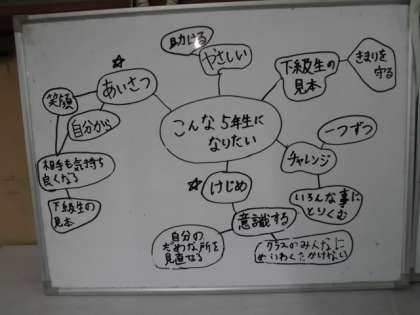 助ける
やさしい
下級生の
見本
きまりを
守る
☆
あいさつ
笑顔
自分から
相手も気持ち
良くなる
下級生の
見本
こんな5年生に
なりたい
一つずつ
チャレンジ
いろんな事に
とりくむ
☆
けじめ
意識する
自分の
だめな所を
見直せる
クラスのみんなに
めいわくをかけない